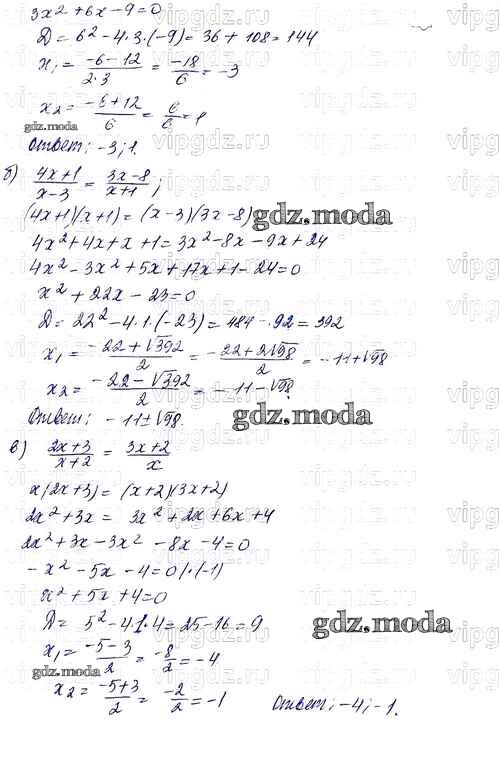 3x² + 6x - 9 = 0
D = 6² - 4·3·(-9) = 36 + 108 = 144
x₁ = (-6 - 12)/(2·3) = -18/6 = -3
x₂ = (-6 + 12)/6 = 6/6 = 1
gdz.moda
Ответ: -3; 1.
б) (4x+1)/(x-3) = (3x-8)/(x+1);
(4x+1)(x+1) = (x-3)(3x-8)
gdz.moda
4x² + 4x + x + 1 = 3x² - 8x - 9x + 24
4x² - 3x² + 5x + 17x + 1 - 24 = 0
x² + 22x - 23 = 0
D = 22² - 4·1·(-23) = 484 - 92 = 392
x₁ = (-22 + √392)/2 = -(22 + 2√98)/2 = -11 + √98
x₂ = (-22 - √392)/2 = -11 - √98.
Ответ: -11 ± √98.
gdz.moda
в) (2x+3)/(x+2) = (3x+2)/x
x(2x+3) = (x+2)(3x+2)
2x² + 3x = 3x² + 2x + 6x + 4
2x² + 3x - 3x² - 8x - 4 = 0
-x² - 5x - 4 = 0 |·(-1)
x² + 5x + 4 = 0
D = 5² - 4·1·4 = 25 - 16 = 9
gdz.moda
x₁ = (-5 - 3)/2 = -8/2 = -4
gdz.moda
x₂ = (-5 + 3)/2 = -2/2 = -1
Ответ: -4; -1.
vipgdz.ru